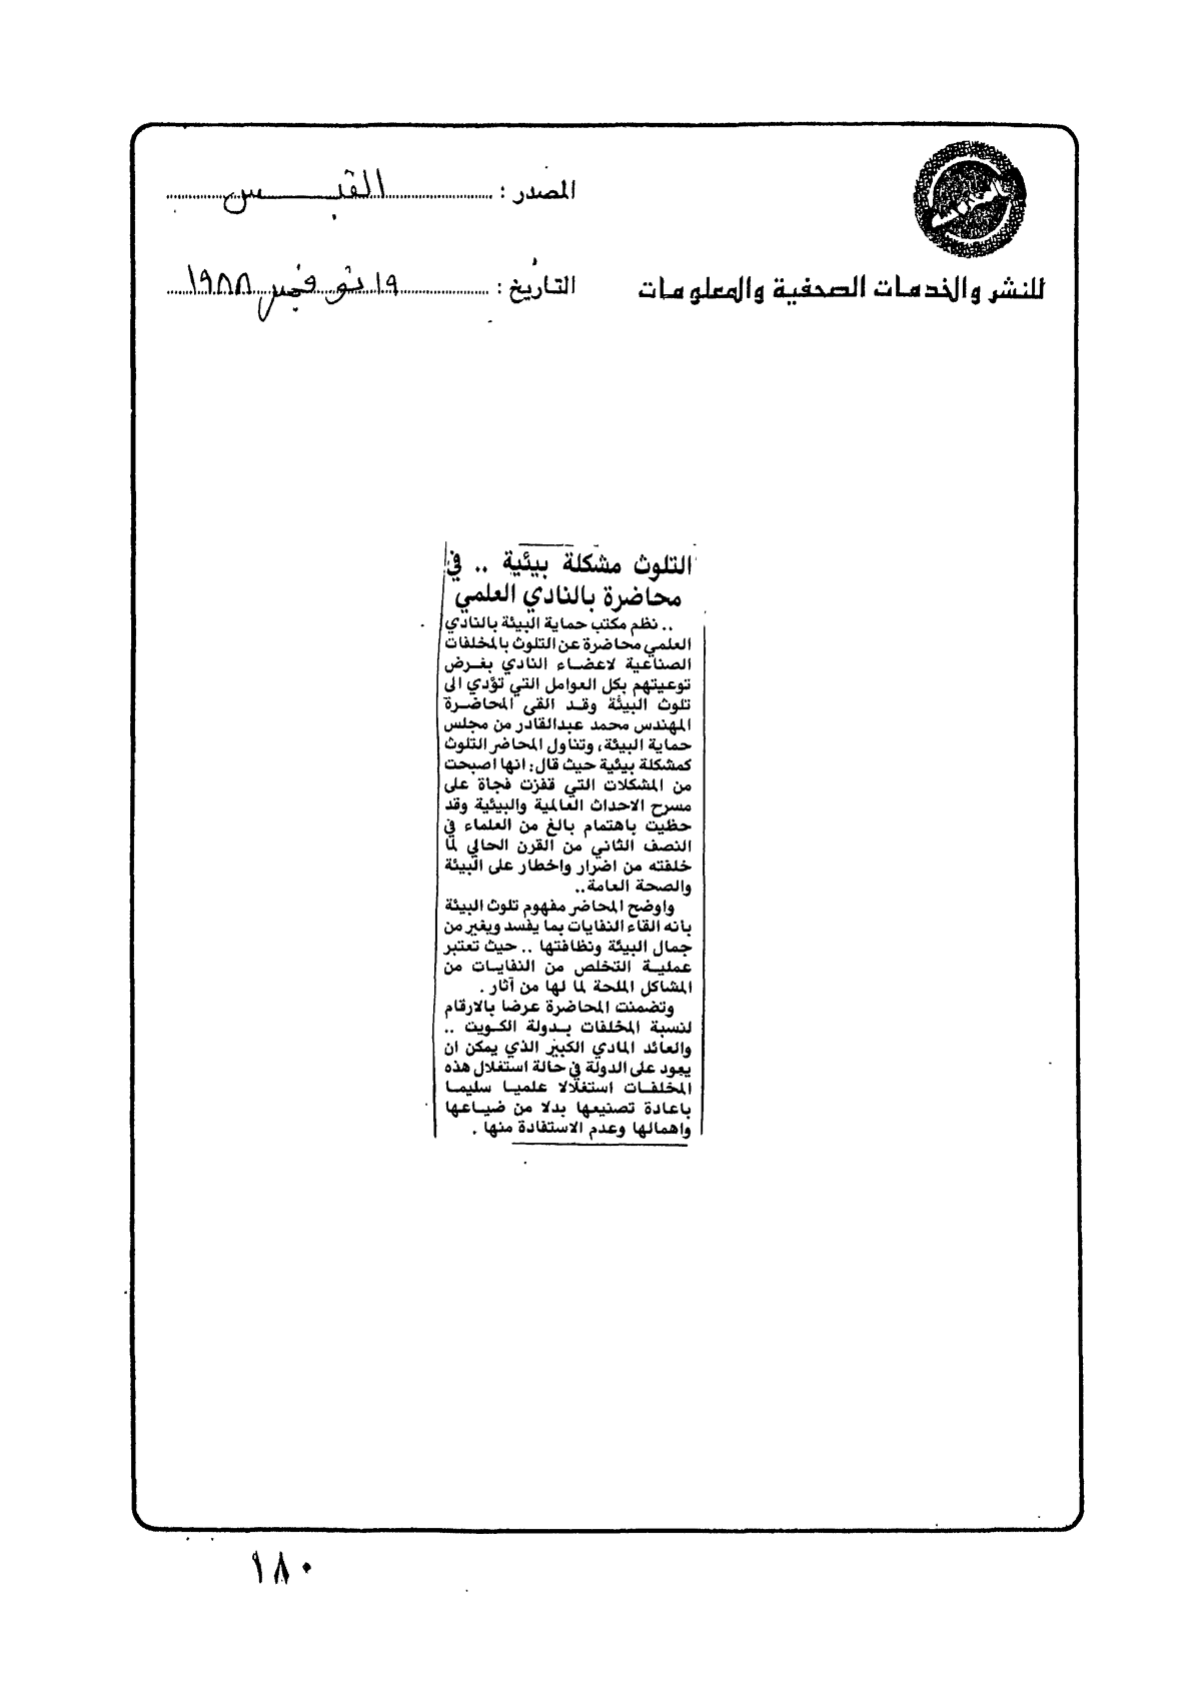 المصدر : القبس
للنشر والخدمات الصحفية والمعلومات
التاريخ : ١٩ نوفمبر ١٩٨٨
التلوث مشكلة بيئية .. في
محاضرة بالنادي العلمي
.. نظم مكتب حماية البيئة بالنادي
العلمي محاضرة عن التلوث بالمخلفات
الصناعية لاعضاء النادي بغرض
توعيتهم بكل العوامل التي تؤدي الى
تلوث البيئة وقد القى المحاضرة
المهندس محمد عبدالقادر من مجلس
حماية البيئة، وتناول المحاضر التلوث
كمشكلة بيئية حيث قال: انها اصبحت
من المشكلات التي قفزت فجاة على
مسرح الاحداث العالمية والبيئية وقد
حظيت باهتمام بالغ من العلماء في
النصف الثاني من القرن الحالي لما
خلفته من اضرار واخطار على البيئة
والصحة العامة..
واوضح المحاضر مفهوم تلوث البيئة
بانه القاء النفايات بما يفسد ويغير من
جمال البيئة ونظافتها .. حيث تعتبر
عملية التخلص من النفايات من
المشاكل الملحة لما لها من آثار .
وتضمنت المحاضرة عرضا بالارقام
لنسبة المخلفات بدولة الكويت ..
والعائد المادي الكبير الذي يمكن ان
يعود على الدولة في حالة استغلال هذه
المخلفات استغلالا علميا سليما
باعادة تصنيعها بدلا من ضياعها
واهمالها وعدم الاستفادة منها .
١٨٠